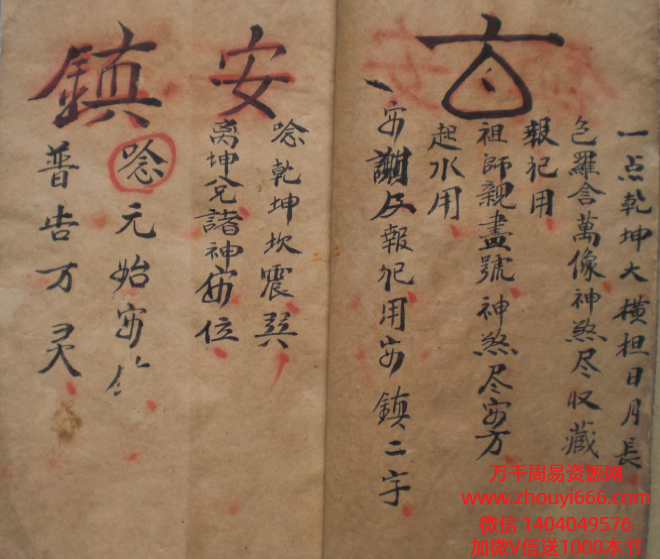 一点乾坤大横担日月長
包羅含萬像神煞尽収藏
報犯用
祖師親盡號神煞尽安方
起水用
一安謝及報犯用安鎮二字
安
唸乾坤坎震巽
离坤兌諸神安位
鎮
唸元始安
普告万灵
万千周易资源网
www.zhouyi666.com
微信 1404049576
加微V信送1000本书